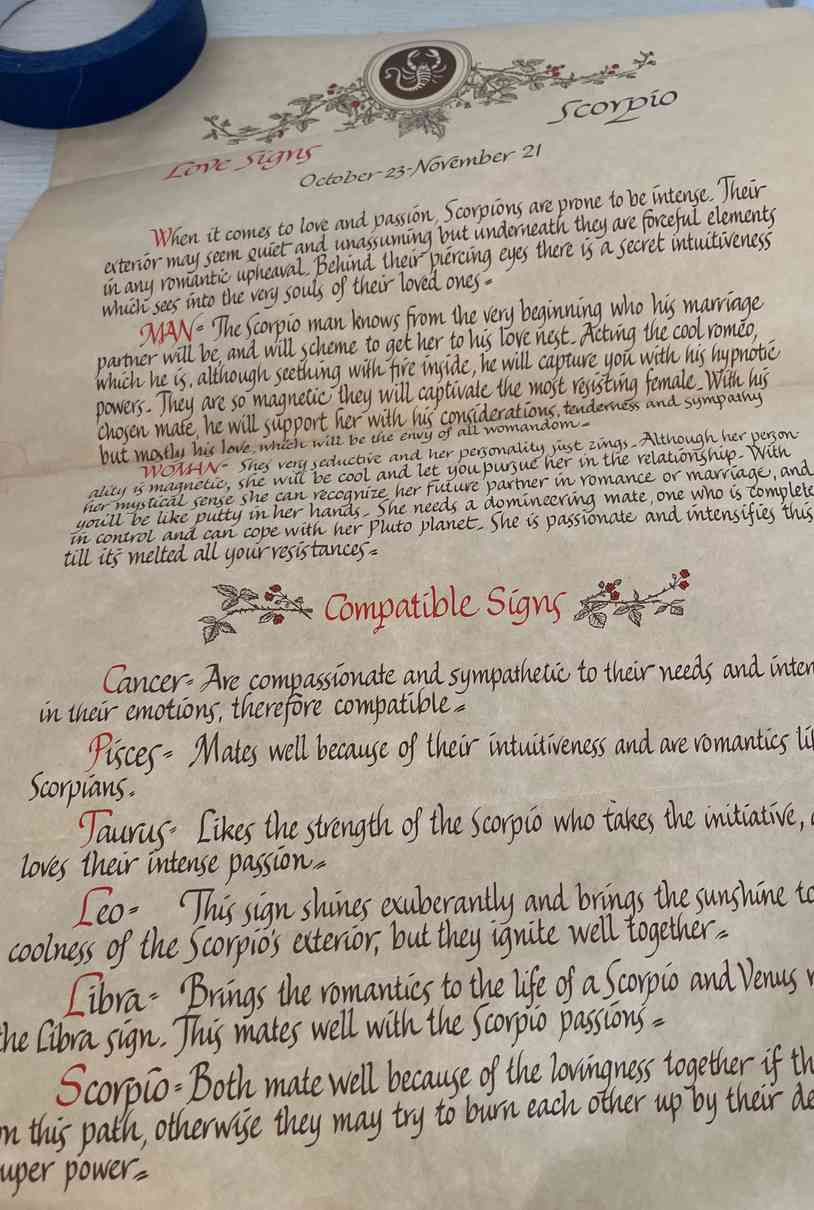 Scorpio
Love Signs
October 23-November 21
When it comes to love and passion, Scorpions are prone to be intense. Their
exterior may seem quiet and unassuming but underneath they are forceful elements
in any romantic upheaval. Behind their piercing eyes there is a secret intuitiveness
which sees into the very souls of their loved ones=
MAN= The Scorpio man knows from the very beginning who his marriage
partner will be, and will scheme to get her to his love nest. Acting the cool romeo,
which he is, although seething with fire inside, he will capture you with his hypnotic
powers. They are so magnetic they will captivate the most resisting female. With his
chosen mate, he will support her with his considerations, tenderness and sympathy
but mostly his love, which will be the envy of all womandom=
WOMAN= Shes very seductive and her personality just zings. Although her person-
ality is magnetic, she will be cool and let you pursue her in the relationship. With
her mystical sense she can recognize her future partner in romance or marriage, and
you'll be like putty in her hands. She needs a domineering mate, one who is complete
in control and can cope with her Pluto planet. She is passionate and intensifies this
till its melted all your resistances=
Compatible Signs
Cancer= Are compassionate and sympathetic to their needs and inten
in their emotions, therefore compatible=
Pisces= Mates well because of their intuitiveness and are romantics li
Scorpians.
Taurus= Likes the strength of the Scorpio who takes the initiative,
loves their intense passion=
Leo= This sign shines exuberantly and brings the sunshine to
coolness of the Scorpio's exterior, but they ignite well together=
Libra= Brings the romantics to the life of a Scorpio and Venus
the Libra sign. This mates well with the Scorpio passions=
Scorpio= Both mate well because of the lovingness together if th
n this path, otherwise they may try to burn each other up by their de
uper power=